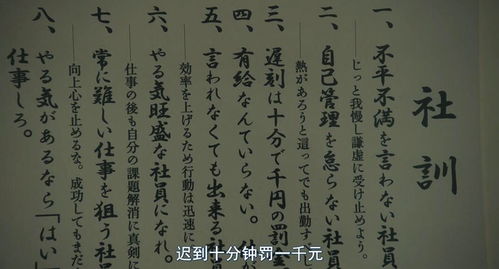 社訓
一、不平不満を言わない社員
じっと我慢し謙虚に受け止めよう。
二、自己管理を怠らない社員
熱があろうと這ってでも出勤す
三、遅刻は十分で千円の罰金
四、有給なんていらない。
五、言われなくても出来る社員
効率を上げるため行動は迅速に
六、やる気旺盛な社員になれ。
仕事の後も自分の課題解消に真剣に
七、常に難しい仕事を狙う社員
向上心を止めるな。成功してもまだ
八、やる気があるなら「はい」
仕事しろ。
迟到十分钟罚一千元